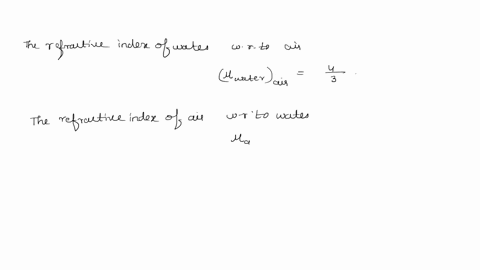 The refractive index of water w.r.to air
(μwater)air = 4/3.
The refractive index of air w.r.to water
μa